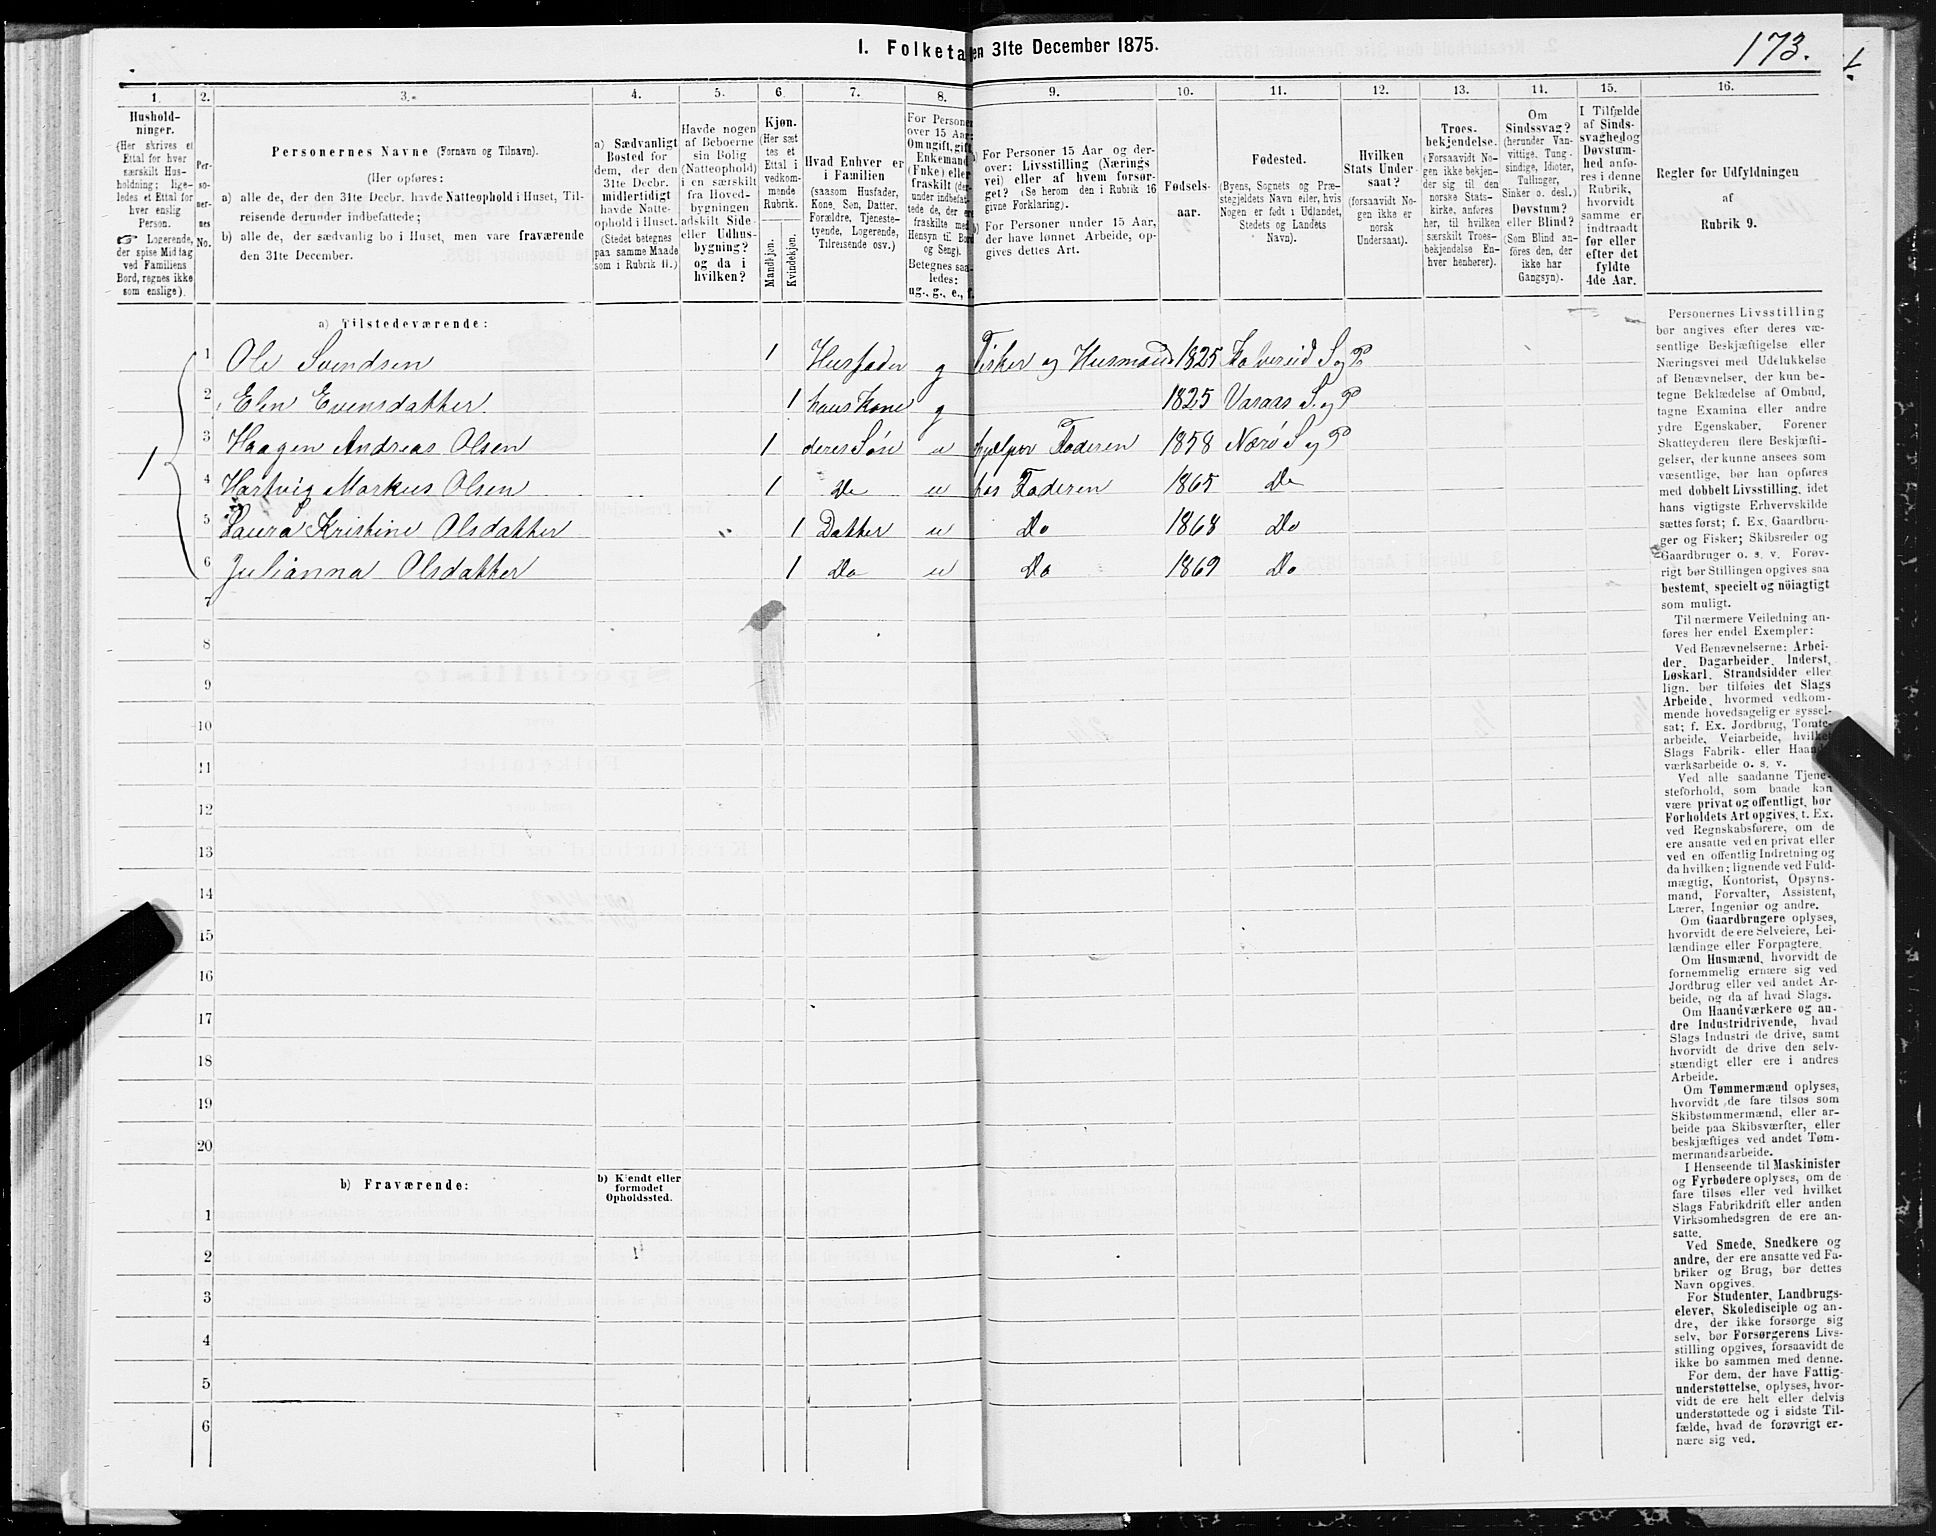 I. Folketa en 31te December 1875.
173.
1.
2.
3.
4.
5.
6.
7.
8.
9.
10.
11.
12.
13.
14.
15.
16.
Hushold-
ninger.
(Her skrives et
Ettal for hver
særskilt Hus-
holdning; lige-
ledes et Ettal for
hver enslig
Person.
☞ Logerende,
der spise Middag
ved Familiens
Bord, regnes ikke
som enslige).
Per-
so-
ner-
nes
No.
Personernes Navne (Fornavn og Tilnavn).
(Her opføres:
a) alle de, der den 31te Decbr. havde Natteophold i Huset, Til-
reisende derunder indbefattede;
b) alle de, der sædvanlig bo i Huset, men vare fraværende
den 31te December.
a) Sædvanligt
Bosted for
dem, der den
31te Decbr.
midlertidigt
havde Natte-
ophold i Huset.
(Stedet betegnes
paa samme Maade
som i Rubrik 11.)
Havde nogen
af Beboerne
sin Bolig
(Natteophold)
i en særskilt
fra Hoved-
bygningen
adskilt Side-
eller Udhus-
bygning?
og da i
hvilken?
Kjøn.
(Her sæt-
tes et
Ettal i
vedkom-
mende
Rubrik.
Mandkjøn.
Kvindekjøn.
Hvad Enhver er
i Familien
(saasom Husfader,
Kone, Søn, Datter,
Forældre, Tjeneste-
tyende, Logerende,
Tilreisende osv.)
For Personer
over 15 Aar:
Om ugift, gift,
Enkemand
(Enke) eller
fraskilt (der-
under indbefat-
tede de, der ere
fraskilte med
Hensyn til Bord
og Seng).
Betegnes saa-
ledes:
ug., g., e., f.
a) For Personer 15 Aar og der-
over: Livsstilling (Nærings-
vei) eller af hvem forsør-
get? (Se herom den i Rubrik 16
givne Forklaring).
b) For Personer under 15 Aar,
der have lønnet Arbeide, op-
gives dettes Art.
Fødsels-
aar.
Fødested.
(Byens, Sognets og Præ-
stegjeldets Navn eller, hvis
Nogen er født i Udlandet,
Stedets og Landets
Navn).
Hvilken
Stats Under-
saat?
(forsaavidt No-
gen ikke er
norsk
Undersaat).
Troes-
bekjendelse.
(Forsaavidt No-
gen ikke bekjen-
der sig til den
norske Stats-
kirke, anføres
her, til hvilken
særskilt Troes-
bekjendelse En-
hver henhører).
Om
Sindssvag?
(herunder Van-
vittige, Tung-
sindige, Idioter,
Tullinger,
Sinker o. desl.)
Døvstum?
eller Blind?
(Som Blind an-
føres den, der
ikke har
Gangsyn).
I Tilfælde
af Sinds-
svaghed og
Døvstum-
hed anfø-
res i denne
Rubrik,
hvorvidt
samme er
indtraadt
før eller
efter det
fyldte
4de Aar.
Regler for Udfyldningen
af
Rubrik 9.
a) Tilstedeværende:
1
1 Ole Svendsen 1 Husfader g Fisker og Husmand 1825 Kolvereid S og P
2 Elen Evensdatter 1 hans Kone g 1825 Varaas S. og P
3 Haagen Andreas Olsen 1 deres Søn u hjelper Faderen 1858 Nærø S og P
4 Hartvig Markus Olsen 1 Do u hos Faderen 1865 Do
5 Laura Kristine Olsdatter 1 Datter u Do 1868 Do
6 Julianna Olsdatter 1 Do u Do 1869 Do
7
8
9
10
11
12
13
14
15
16
17
18
19
20
b) Fraværende:
b) Kjendt eller
formodet
Opholdssted.
1
2
3
4
5
6
Personernes Livsstilling
bør angives efter deres væ-
sentlige Beskjæftigelse eller
Næringsvei med Udelukkelse
af Benævnelser, der kun be-
tegne Beklædelse af Ombud,
tagne Examina eller andre
ydre Egenskaber. Forener
Skatteyderen flere Beskjæfti-
gelser, der kunne ansees som
væsentlige, bør han opføres
med dobbelt Livsstilling, idet
hans vigtigste Erhvervskilde
sættes først; f. Ex. Gaardbru-
ger og Fisker; Skibsreder og
Gaardbruger o. s. v. Forøv-
rigt bør Stillingen opgives saa
bestemt, specielt og nöiagtigt
som muligt.
Til nærmere Veiledning an-
føres her endel Exempler:
Ved Benævnelserne: Arbei-
der, Dagarbeider, Inderst,
Løskarl, Strandsidder eller
lign. bør tilføies det Slags
Arbeide, hvormed vedkom-
mende hovedsagelig er syssel-
sat; f. Ex. Jordbrug, Tomte-
arbeide, Veiarbeide, hvilket
Slags Fabrik- eller Haand-
værksarbeide o. s. v.
Ved alle saadanne Tjene-
steforhold, som baade kan
være privat og offentligt, bør
Forholdets Art opgives, t. Ex.
ved Regnskabsførere, om de
ere ansatte ved en privat eller
ved en offentlig Indretning og
da hvilken; lignende ved Fuld-
mægtig, Kontorist, Opsyns-
mand, Forvalter, Assistent,
Lærer, Ingeniør og andre.
Om Gaardbrugere oplyses,
hvorvidt de ere Selveiere, Lei-
lændinge eller Forpagtere.
Om Husmænd, hvorvidt de
fornemmelig ernære sig ved
Jordbrug eller ved andet Ar-
beide, og da af hvad Slags.
Om Haandværkere og an-
dre Industridrivende, hvad
Slags Industri de drive, samt
hvorvidt de drive den selv-
stændigt eller ere i andres
Arbeide.
Om Tømmermænd oplyses,
hvorvidt de fare tilsøs som
Skibstømmermænd, eller ar-
beide paa Skibsværfter, eller
beskjæftiges ved andet Tøm-
mermandsarbeide.
I Henseende til Maskinister
og Fyrbødere oplyses, om de
fare tilsøs eller ved hvilket
Slags Fabrikdrift eller anden
Virksomhedsgren de ere an-
satte.
Ved Smede, Snedkere og
andre, der ere ansatte ved Fa-
briker og Brug, bør dettes
Navn opgives.
For Studenter, Landbrugs-
elever, Skoledisciple og an-
dre, der ikke forsørge sig
selv, bør Forsørgerens Livs-
stilling opgives, forsaavidt de
ikke bo sammen med denne.
For dem, der have Fattig-
understøttelse, oplyses, hvor-
vidt de ere helt eller delvis
understøttede og i sidste Til-
fælde, hvad de forøvrigt er-
nære sig ved.